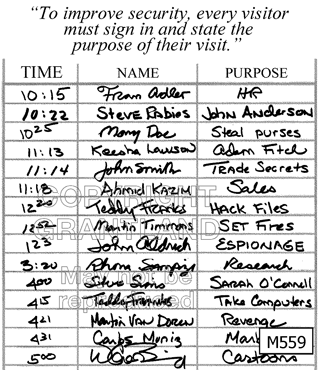 "To improve security, every visitor
must sign in and state the
purpose of their visit."
TIME NAME PURPOSE
10:15 Fran Adler HR
10:22 Steve Robios John Anderson
10 25 Mary Doe Steal purses
11:13 Keesha Lawson Adam Fitch
11:14 John Smith Trade Secrets
11:18 Ahmid Kazim Sales
12 20 Teddy Franks Hack Files
12 52 Martin Timmons Set Fires
1 23 John Aldrich ESPIONAGE
3:20 Rhona Research
4 00 Steve Sims Sarah O'Connell
4 15 Teddy Take Computers
4 21 Martin Van Doren Revenge
4 31 Carlos Muniz Mark
5 00 Cartoons
M559